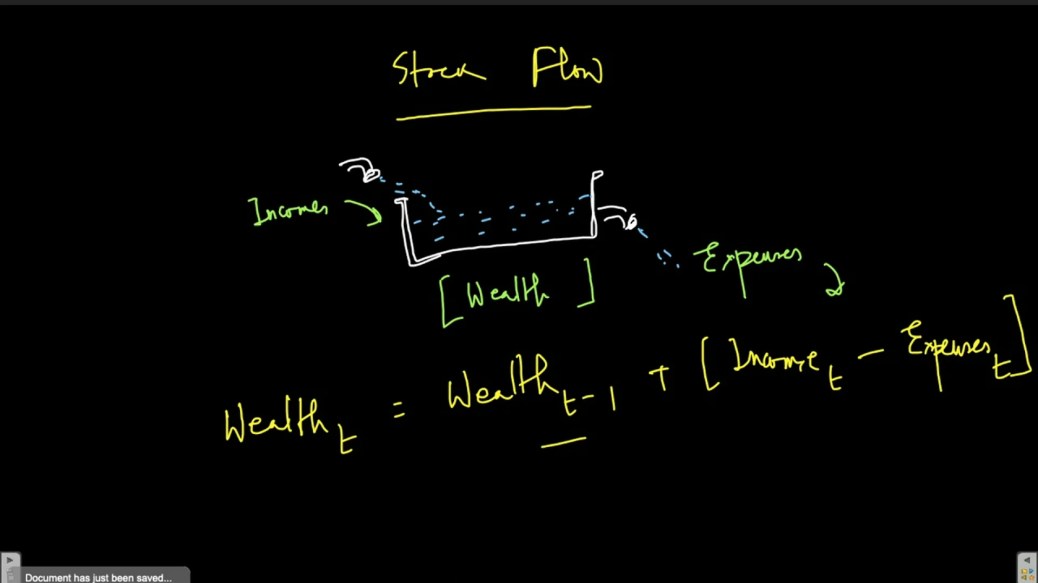 Stock Flow
Incomes
Expenses
[Wealth]
Wealth_t = Wealth_t-1 + [Income_t - Expenses_t]
Document has just been saved...